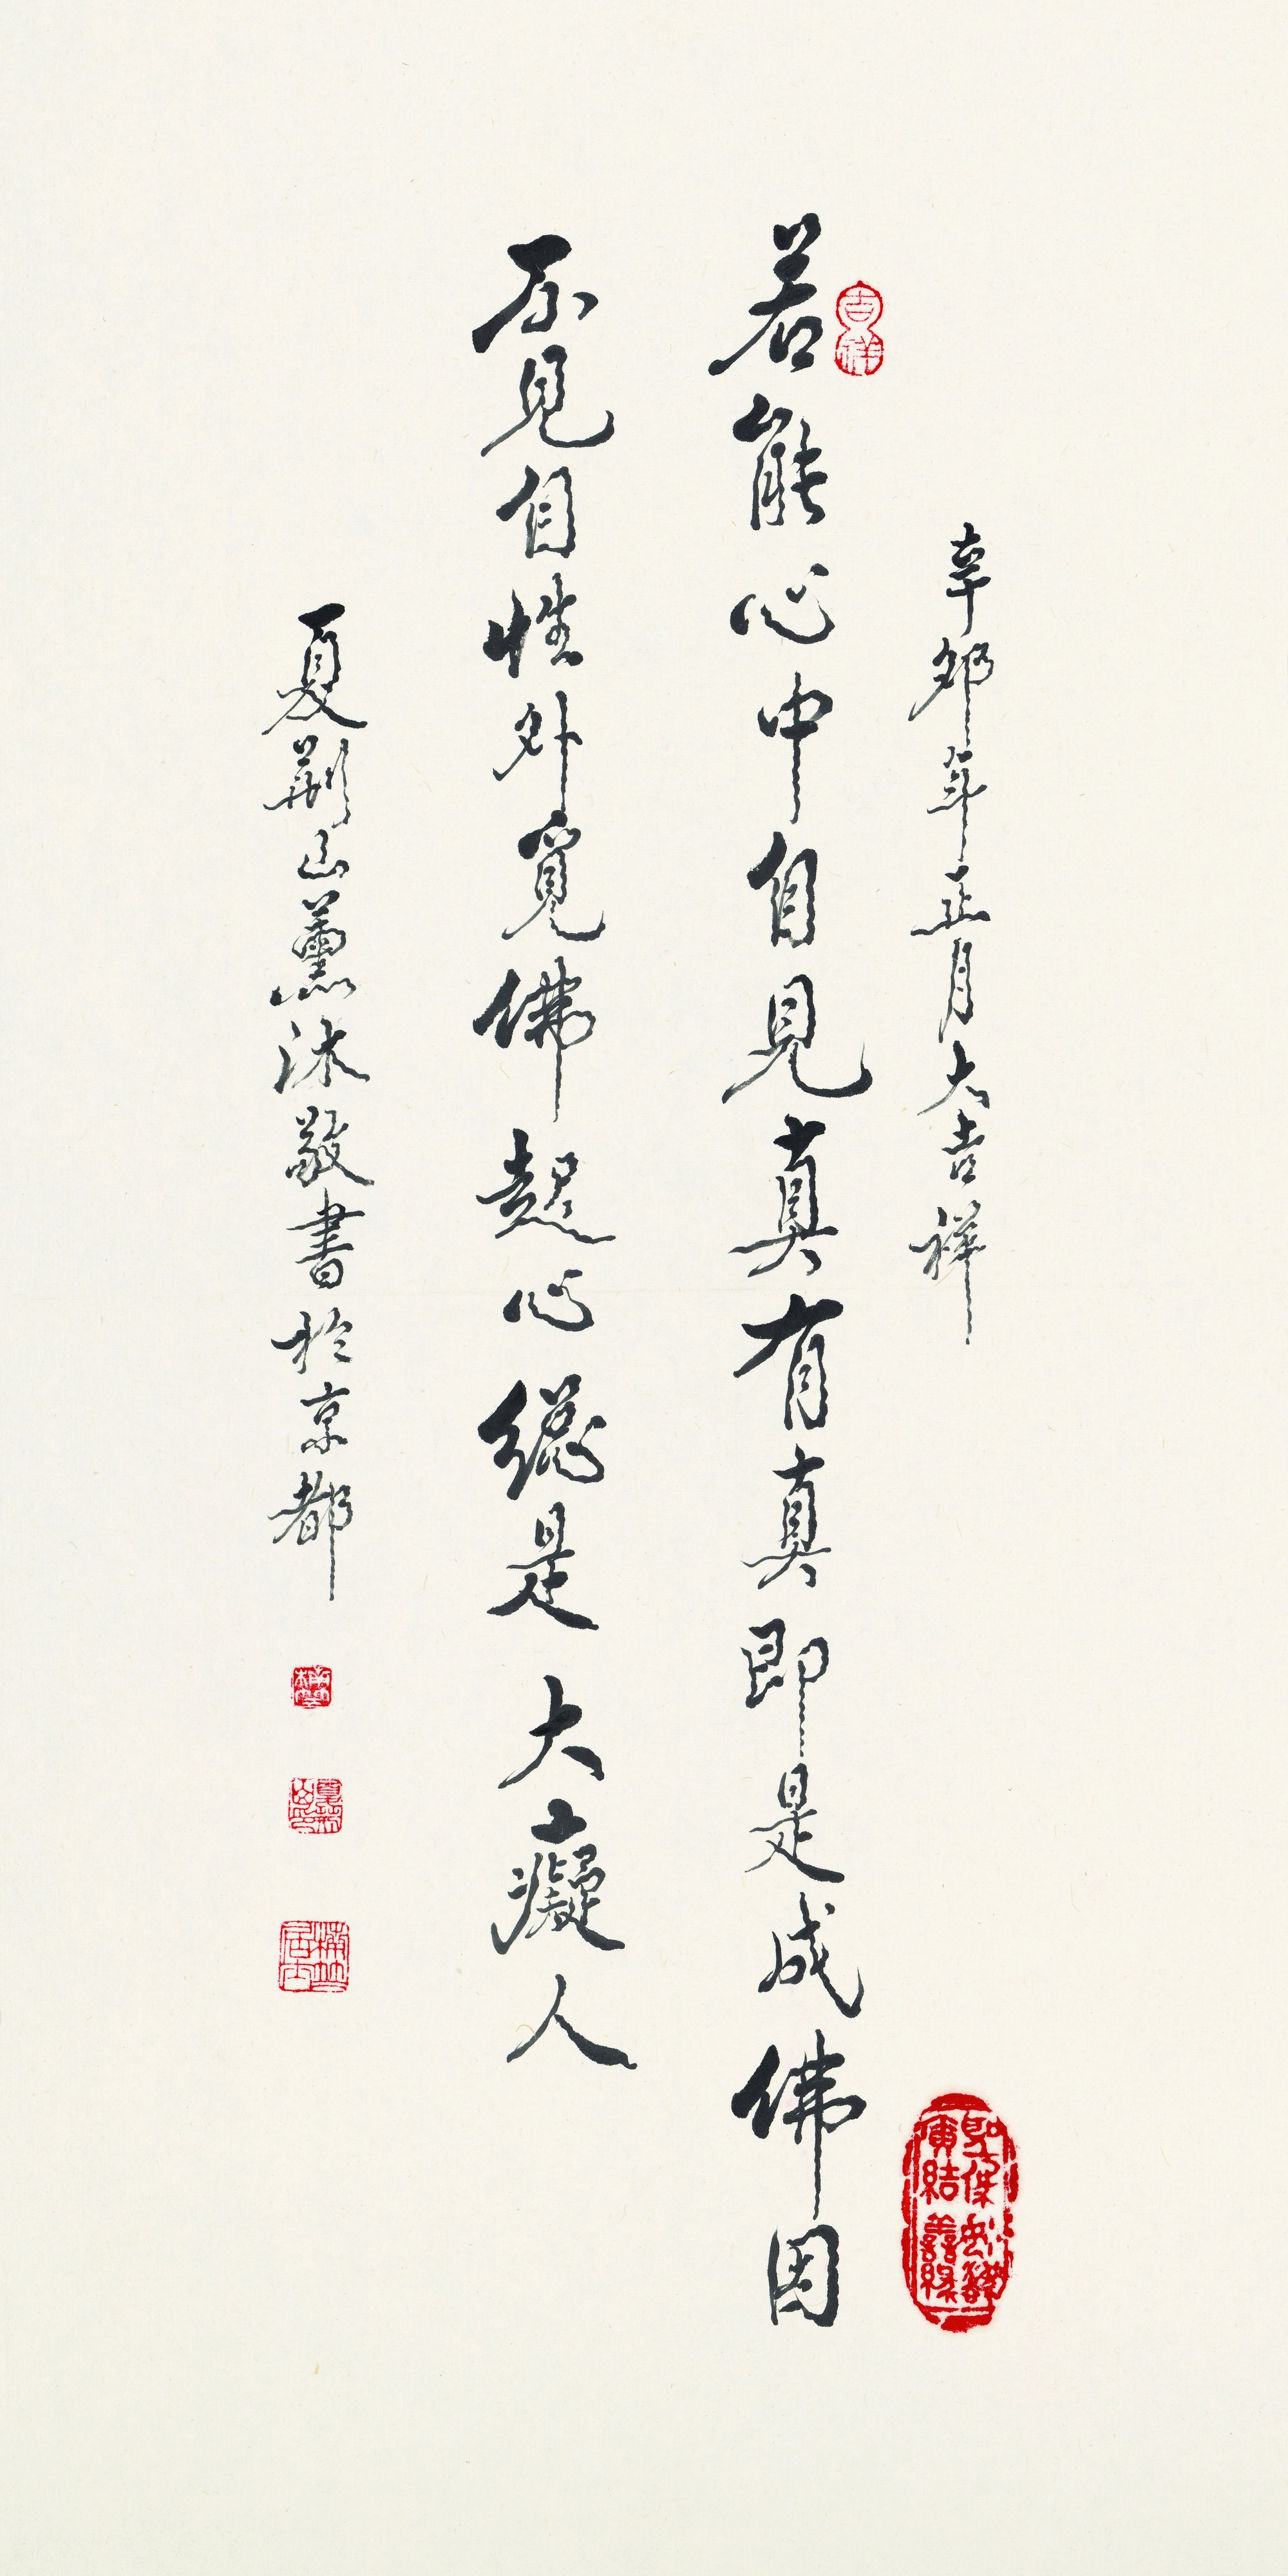 辛卯年正月大吉祥
吉祥
若能心中自見真有真即是成佛因
不見自性外覓佛起心總是大癡人
夏荊山薰沐敬書於京都
廣結善緣